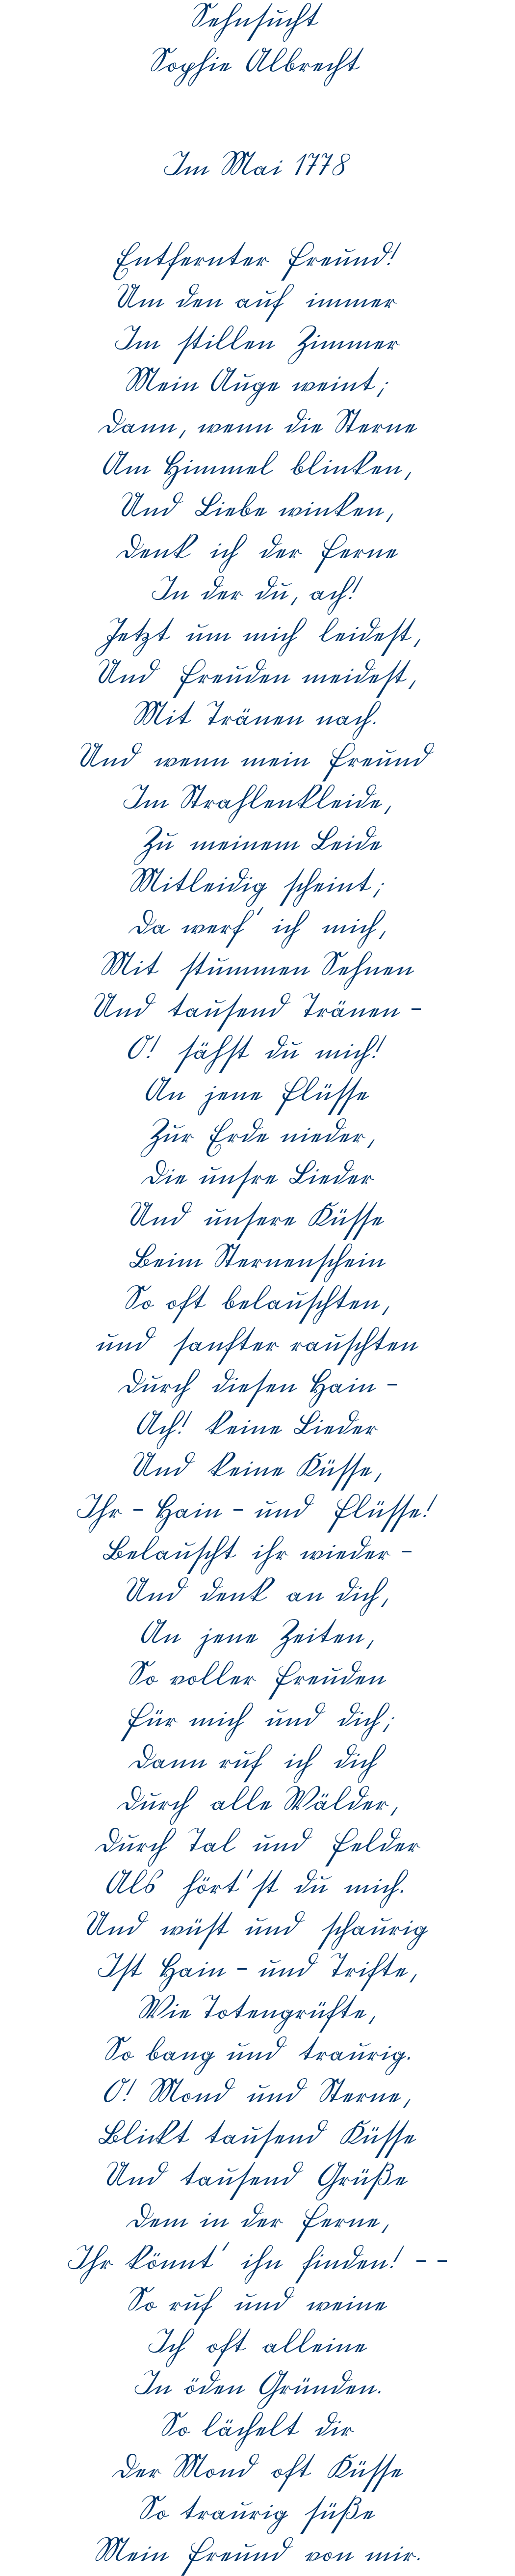 Sehnsucht
Sophie Albrecht
Im Mai 1778
Entfernter Freund!
Um den auf immer
Im stillen Zimmer
Mein Auge weint;
Dann, wenn die Sterne
Am Himmel blinken,
Und Liebe winken,
Denk ich der Ferne
In der du, ach!
Jetzt um mich leidest,
Und Freuden meidest,
Mit Tränen nach.
Und wenn mein Freund
Im Strahlenkleide,
Zu meinem Leide
Mitleidig scheint;
Da werf' ich mich,
Mit stummen Sehnen
Und tausend Tränen -
O! sähst du mich!
An jene Flüsse
Zur Erde nieder,
Die unsre Lieder
Und unsere Küsse
Beim Sternenschein
So oft belauschten,
und sanfter rauschten
Durch diesen Hain -
Ach! keine Lieder
Und keine Küsse,
Ihr - Hain - und Flüsse!
Belauscht ihr wieder -
Und denk an dich,
An jene Zeiten,
So voller Freuden
Für mich und dich;
Dann ruf ich dich
Durch alle Wälder,
Durch Tal und Felder
Als hört'st du mich.
Und wüst und schaurig
Ist Hain - und Trifte,
Wie Totengrüfte,
So bang und traurig.
O! Mond und Sterne,
Blickt tausend Küsse
Und tausend Grüße
Dem in der Ferne,
Ihr könnt' ihn finden! - -
So ruf und weine
Ich oft alleine
In öden Gründen.
So lächelt dir
Der Mond oft Küsse
So traurig süße
Mein Freund von mir.